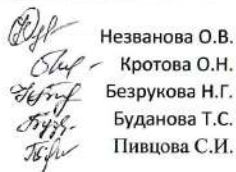 Незванова О.В.
Кротова О.Н.
Безрукова Н.Г.
Буданова Т.С.
Пивцова С.И.